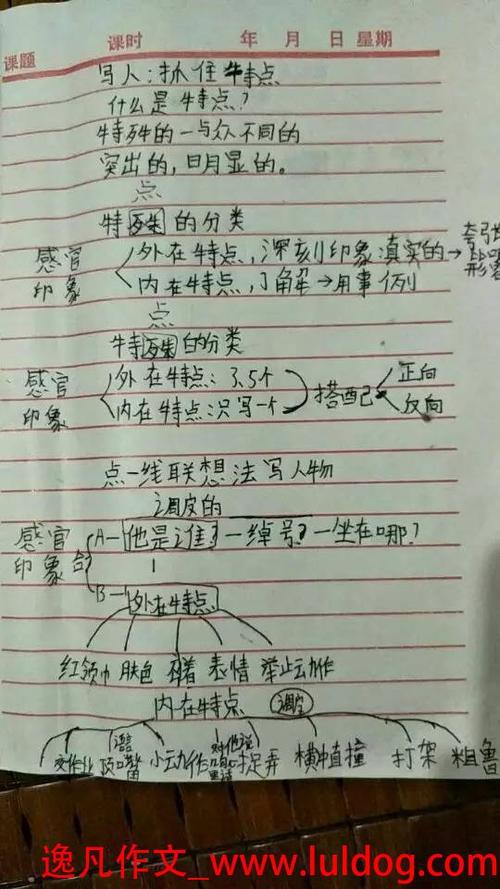 课题 课时 年 月 日 星期
写人:抓住特点
什么是特点?
特殊的一与众不同的
突出的,明显的。
点
特殊的分类
感官印象
外在特点,深刻印象 真实的→夸张 比喻 形容
内在特点,了解→用事例
点
特殊的分类
感官印象
外在特点:3.5个
内在特点:只写一个
搭配
正向
反向
点一线联想法写人物
调皮的
感官印象
A—他是谁?一绰号?一坐在哪?
B—外在特点
红领巾 肤色 表情 举止动作
内在特点 调皮
交作业 顶嘴 小动作 捉弄 横冲直撞 打架 粗鲁
逸凡作文_www.luldog.com